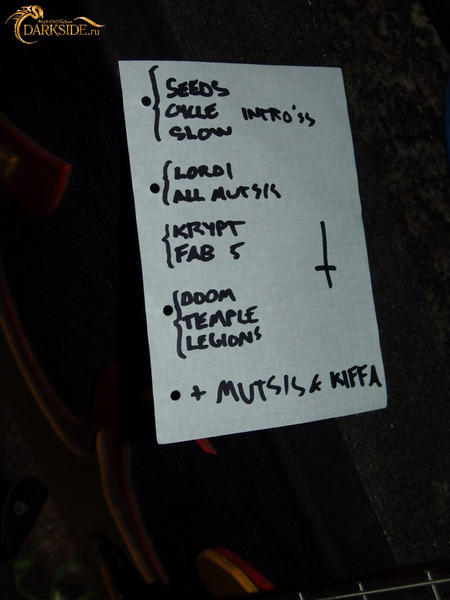 DARKSIDE.ru
SEEDS
CYCLE INTRO'SS
SLOW
LORDI
ALL MUTSIS
KRYPT
FAB 5
DOOM
TEMPLE
LEGIONS
+ MUTSIS & KIFFA